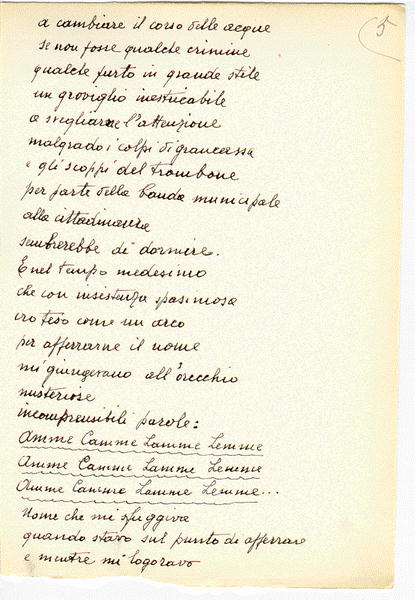 5
a cambiare il corso delle acque
se non fosse qualche crimine
qualche furto in grande stile
un groviglio inestricabile
a svegliarne l'attenzione
malgrado i colpi di grancassa
e gli scoppi del trombone
per parte della banda municipale
alla cittadinanza
sembrerebbe di dormire.
E nel tempo medesimo
che con insistenza spasimosa
ero teso come un arco
per afferrarne il nome
mi giungevano all'orecchio
misteriose
incomprensibili parole:
Amme Camme Lamme Lemme
Amme Camme Lamme Lemme
Amme Camme Lamme Lemme...
Nome che mi sfuggiva
quando stavo sul punto di afferrare
e mentre mi logoravo